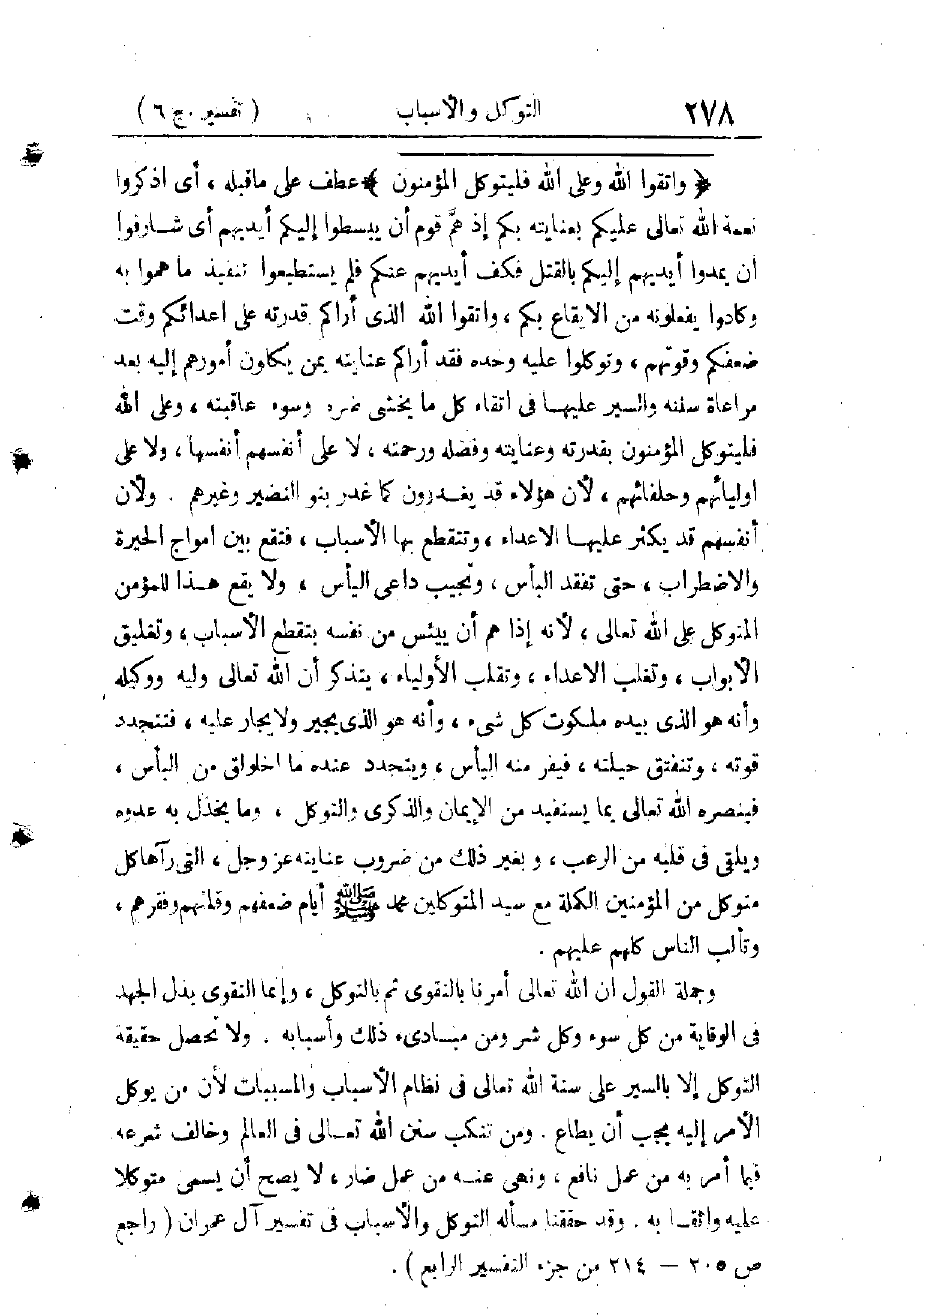 ٢٧٨ التوكل والأسباب ( تفسير . ج ٦ )
﴿ واتقوا الله وعلى الله فليتوكل المؤمنون ﴾ عطف على ماقبله ، أى اذكروا
نعمة الله تعالى عليكم بعنايته بكم إذ همَّ قوم أن يبسطوا إليكم أيديهم أى شارفوا
أن يمدوا أيديهم إليكم بالقتل فكف أيديهم عنكم فلم يستطيعوا تنفيذ ما هموا به
وكادوا يفعلونه من الايقاع بكم ، واتقوا الله الذى أراكم قدرته على اعدائكم وقت
ضعفكم وقوتهم ، وتوكلوا عليه وحده فقد أراكم عنايته بمن يكلون أمورهم إليه بعد
مراعاة سننه والسير عليها فى اتقاء كل ما يخشى ضره وسوء عاقبته ، وعلى الله
فليتوكل المؤمنون بقدرته وعنايته وفضله ورحمته ، لا على أنفسهم أنفسها ، ولا على
اوليائهم وحلفائهم ، لأن هؤلاء قد يغدرون كما غدر بنو النضير وغيرهم . ولأن
أنفسهم قد يكثر عليها الاعداء ، وتتقطع بها الأسباب ، فتقع بين امواج الحيرة
والاضطراب ، حتى تفقد البأس ، وتجيب داعى اليأس ، ولا يقع هذا للمؤمن
المتوكل على الله تعالى ، لأنه إذا هم أن ييئس من نفسه بتقطع الأسباب ، وتغليق
الأبواب ، وتغلب الاعداء ، وتقلب الأولياء ، يتذكر أن الله تعالى وليه ووكيله
وأنه هو الذى بيده ملكوت كل شىء ، وأنه هو الذى يجير ولا يجار عليه ، فتتجدد
قوته ، وتنفتق حيلته ، فيفر منه اليأس ، ويتجدد عنده ما اخلولق من البأس ،
فينصره الله تعالى بما يستفيد من الإيمان والذكرى والتوكل ، وما يخذل به عدوه
ويلقى فى قلبه من الرعب ، وبغير ذلك من ضروب عنايته عز وجل ، التى رآها كل
متوكل من المؤمنين الكملة مع سيد المتوكلين محمد ﷺ أيام ضعفهم وقلتهم وفقرهم ،
وتألب الناس كلهم عليهم .
وجملة القول ان الله تعالى أمرنا بالتقوى ثم بالتوكل ، وإنما التقوى بذل الجهد
فى الوقاية من كل سوء وكل شر ومن مبادىء ذلك وأسبابه . ولا تحصل حقيقة
التوكل إلا بالسير على سنة الله تعالى فى نظام الأسباب والمسببات لأن من يوكل
الأمر إليه يجب أن يطاع . ومن تنكب سنن الله تعالى فى العالم وخالف شرعه
فيما أمر به من عمل نافع ، ونهى عنه من عمل ضار ، لا يصح أن يسمى متوكلا
عليه واثقا به . وقد حققنا مسألة التوكل والأسباب فى تفسير آل عمران ( راجع
ص ٢٠٥ – ٢١٤ من جزء التفسير الرابع ) .